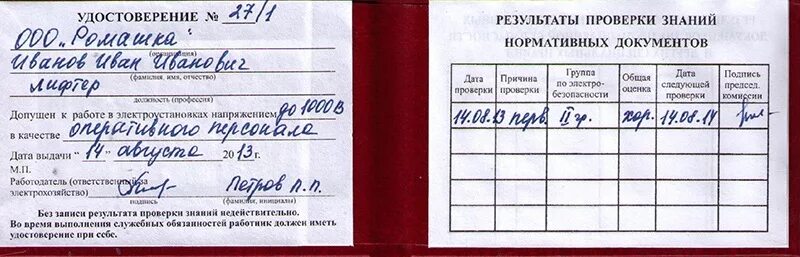 УДОСТОВЕРЕНИЕ № 27/1
ООО „Ромашка"
(организация)
Иванов Иван Иванович
(фамилия, имя, отчество)
лифтер
должность (профессия)
Допущен к работе в электроустановках напряжением до 1000 В
в качестве оперативного персонала
Дата выдачи "14" августа 2013г.
М.П.
Работодатель (ответственный за
электрохозяйство) Петров П.П.
подпись (фамилия, инициалы)
Без записи результата проверки знаний недействительно.
Во время выполнения служебных обязанностей работник должен иметь
удостоверение при себе.
РЕЗУЛЬТАТЫ ПРОВЕРКИ ЗНАНИЙ
НОРМАТИВНЫХ ДОКУМЕНТОВ
Дата проверки Причина проверки Группа по электро-безопасности Общая оценка Дата следующей проверки Подпись председ. комиссии
14.08.13 перв. II гр. хор. 14.08.14